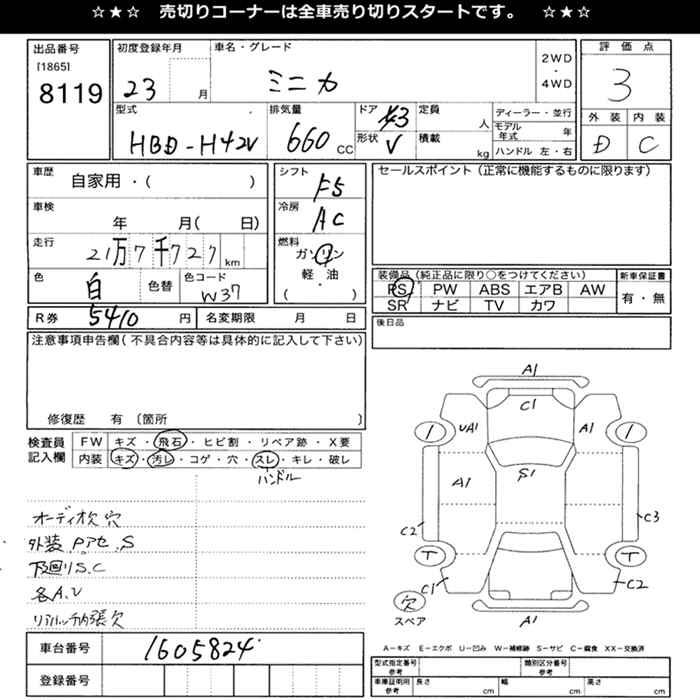 ☆★☆　売切りコーナーは全車売り切りスタートです。　☆★☆
出品番号 初度登録年月 車名・グレード 2WD ・ 4WD 評価点
[1865]
8119 23 月 ミニカ 3
型式 排気量 ドア 3 定員 人 ディーラー・並行 外装 内装
HBD-H42V 660 CC 形状 V 積載 kg モデル年式 年 D C
ハンドル 左・右
車歴 自家用・( ) シフト F5 セールスポイント (正常に機能するものに限ります)
車検 年 月( 日) 冷房 AC
走行 21万7千727 km 燃料 ガソリン
軽・油
( )
色 白 色替 色コード W37
装備品 (純正品に限り○をつけてください) 新車保証書
PS PW ABS エアB AW 有・無
SR ナビ TV カワ
R券 5410 円 名変期限 月 日 後日品
注意事項申告欄 (不具合内容等は具体的に記入して下さい)
修復歴 有 〔箇所 〕
検査員 FW キズ・飛石・ヒビ割・リペア跡・X要
記入欄 内装 キズ・汚レ・コゲ・穴・スレ・キレ・破レ
ハンドル
オーディオ欠 穴
外装 Pアセ.S
下回りS.C
各A.U
リアハッチ内張欠
A1
C1
UA1 A1
A1 S1
C2 C3
C1 C2
欠
スペア A1
車台番号 1605824
登録番号
A－キズ E－エクボ U－凹み W－補修跡 S－サビ C－腐食 XX－交換済
型式指定番号 参考 類別区分番号 参考
車庫証明用 参考 長さ cm 幅 cm 高さ cm